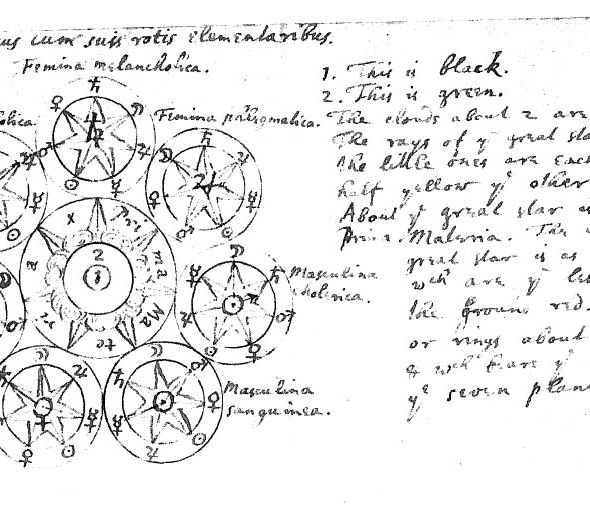 us cum suis rotis elementaribus.
Femina melancholica.
Femina phlegmatica.
Masculina
cholerica.
Masculina
sanguinea.
Pri
ma
Ma
te
ri
a
x
2
1
1. This is black.
2. This is green.
The clouds about 2 are
The rays of yͤ great sta
the little ones are each
half yellow yͤ other
About yͤ great star
Prima Materia. The
great star is as
wch are yͤ
the ground red.
or rings about
& wch beare yͤ
yͤ seven plan